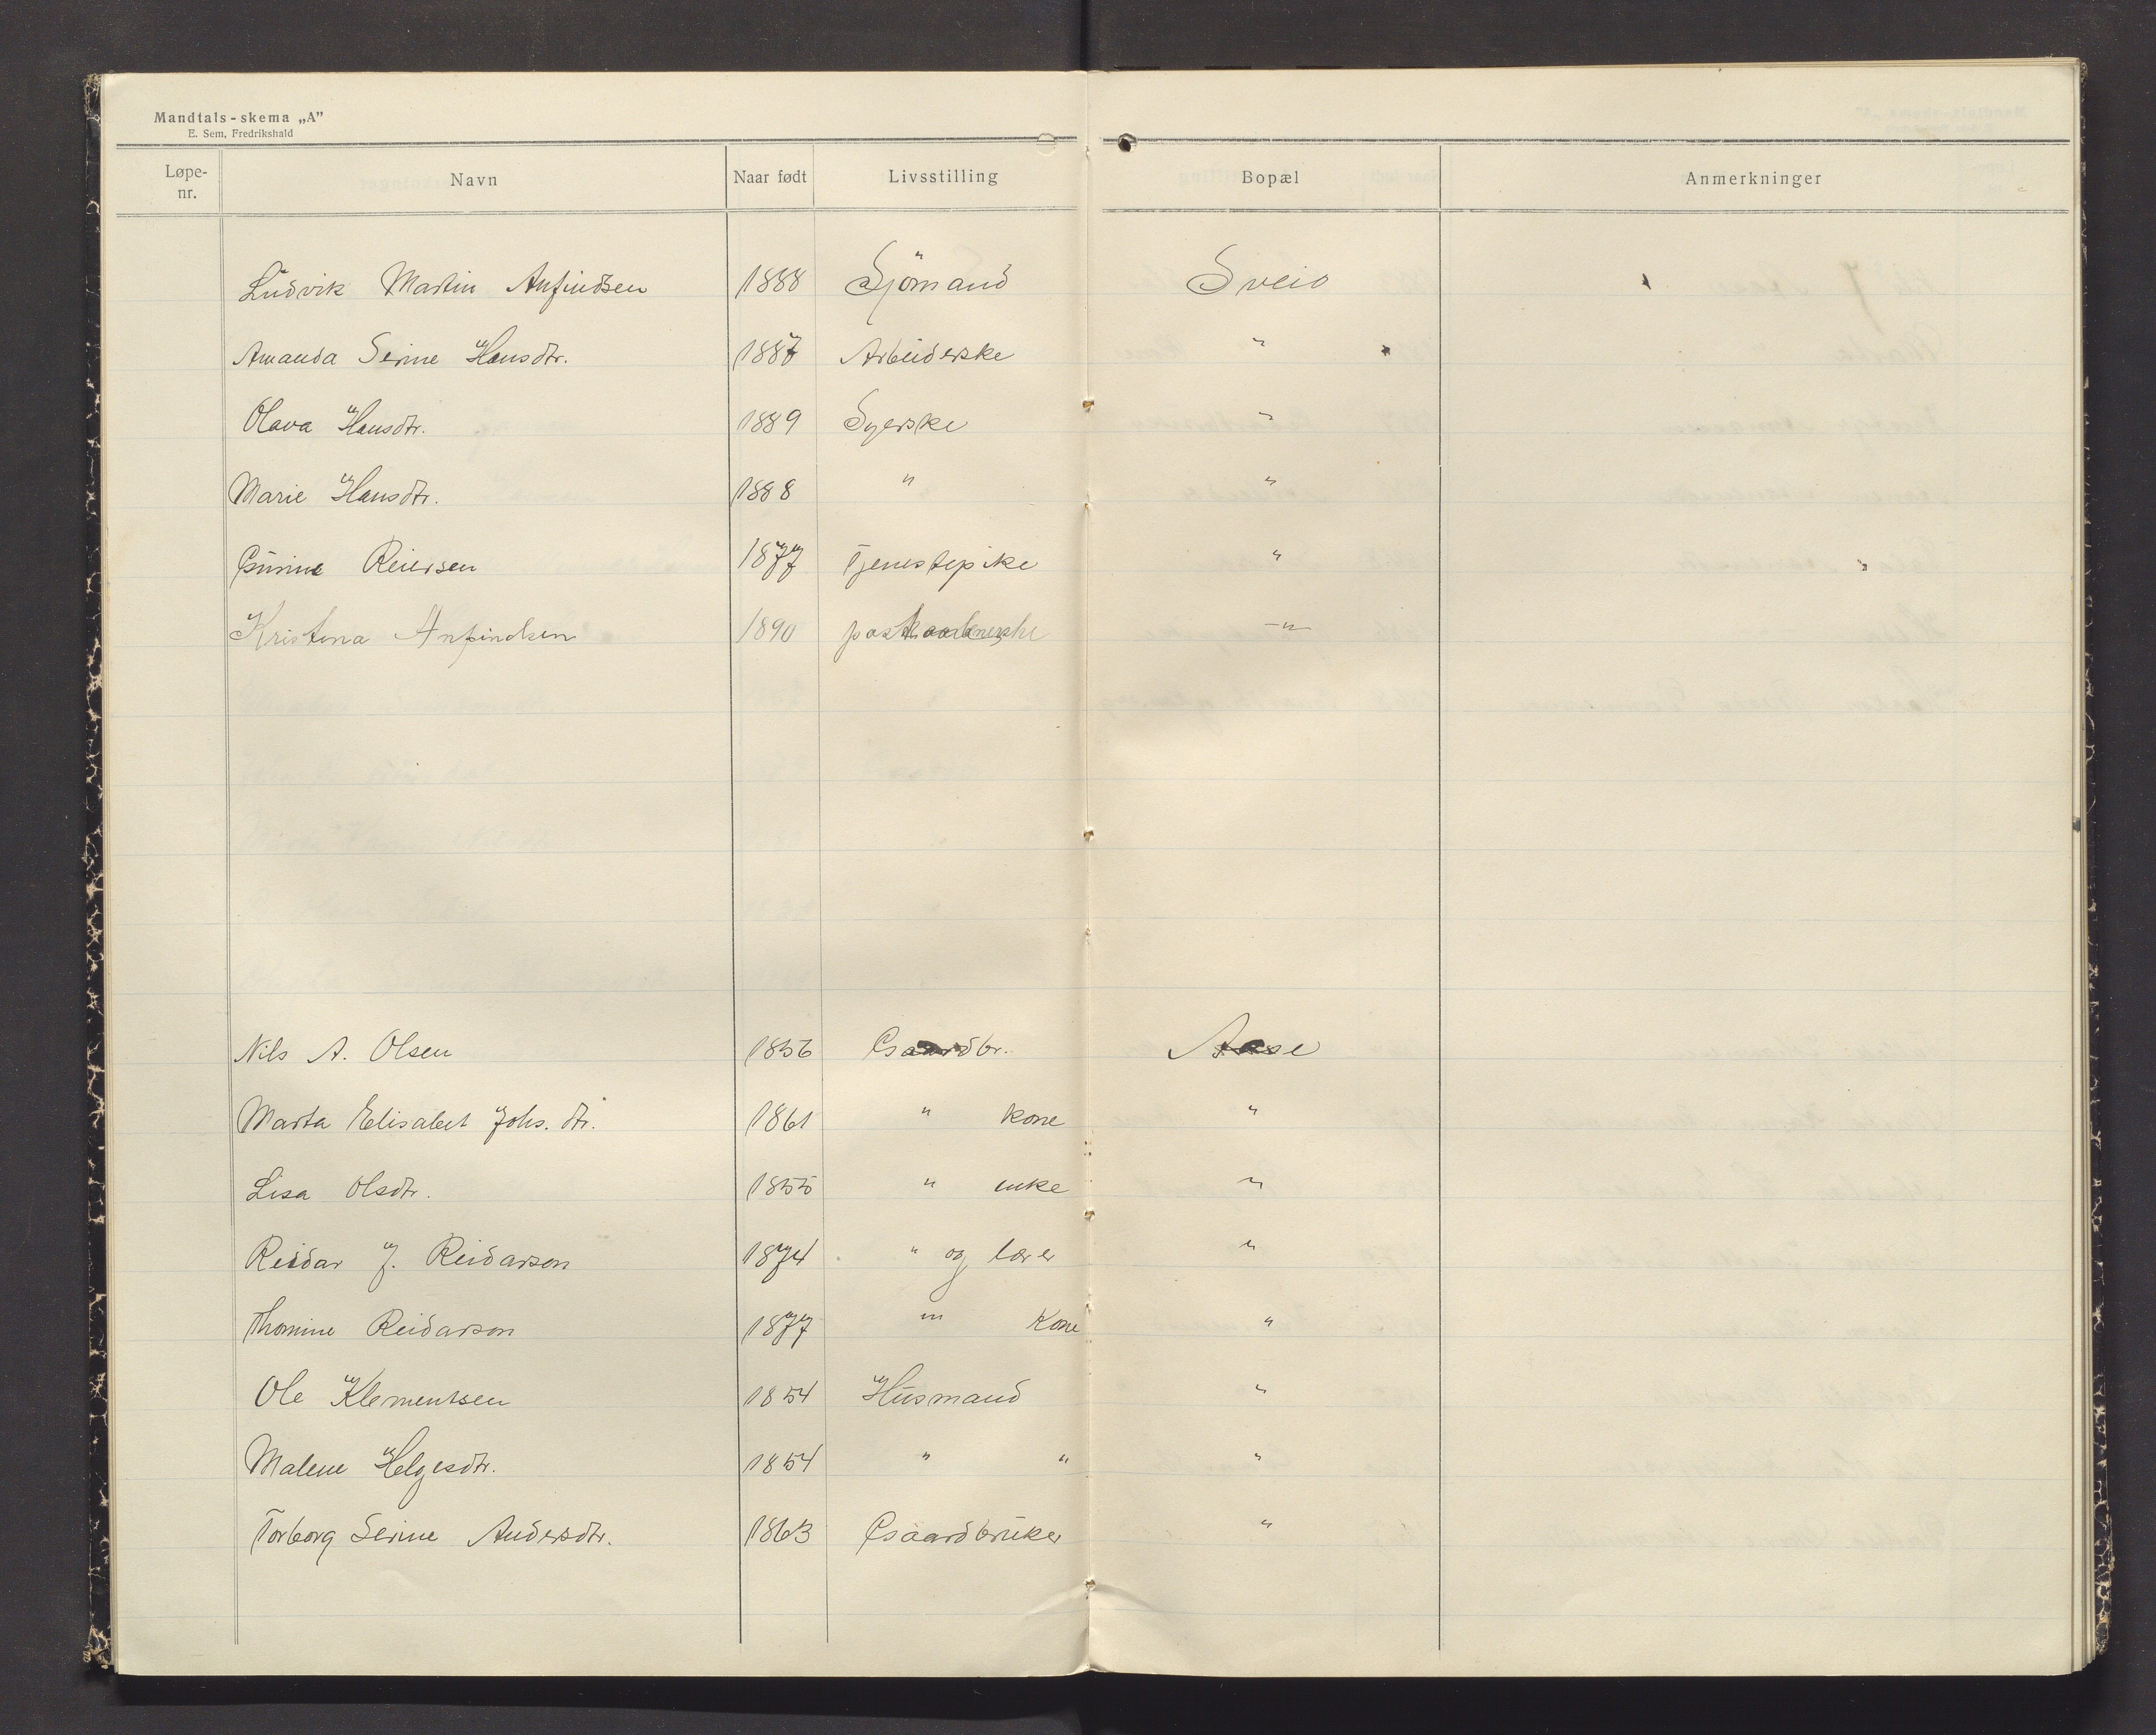 Mandtals-skema „A”
E. Sem, Fredrikshald
Løpe-nr. Navn Naar født Livsstilling Bopæl Anmerkninger
Ludvik Martin Anfindsen 1888 Sjömand Sveio
Amanda Serine Hansdtr. 1887 Arbeiderske "
Olava Hansdtr. 1889 Syerske "
Marie Hansdtr. 1888 " "
Gurine Reiersen 1877 Tjenestepike "
Kristina Anfindsen 1890 postaabnerske -"-
Nils A. Olsen 1856 Gaardbr. Aase
Marta Elisabet Johs. dtr. 1861 " kone "
Lisa Olsdtr. 1855 " enke "
Reidar J. Reidarson 1874 " og lærer "
Thomine Reidarson 1877 "' Kone "
Ole Klementsen 1854 Husmand "
Malene Helgesdtr. 1854 " " "
Torborg Serine Andersdtr. 1863 Gaardbruker "